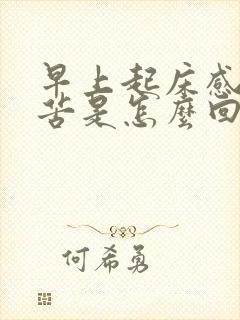 早上起床感
苦是怎麼回
何希勇